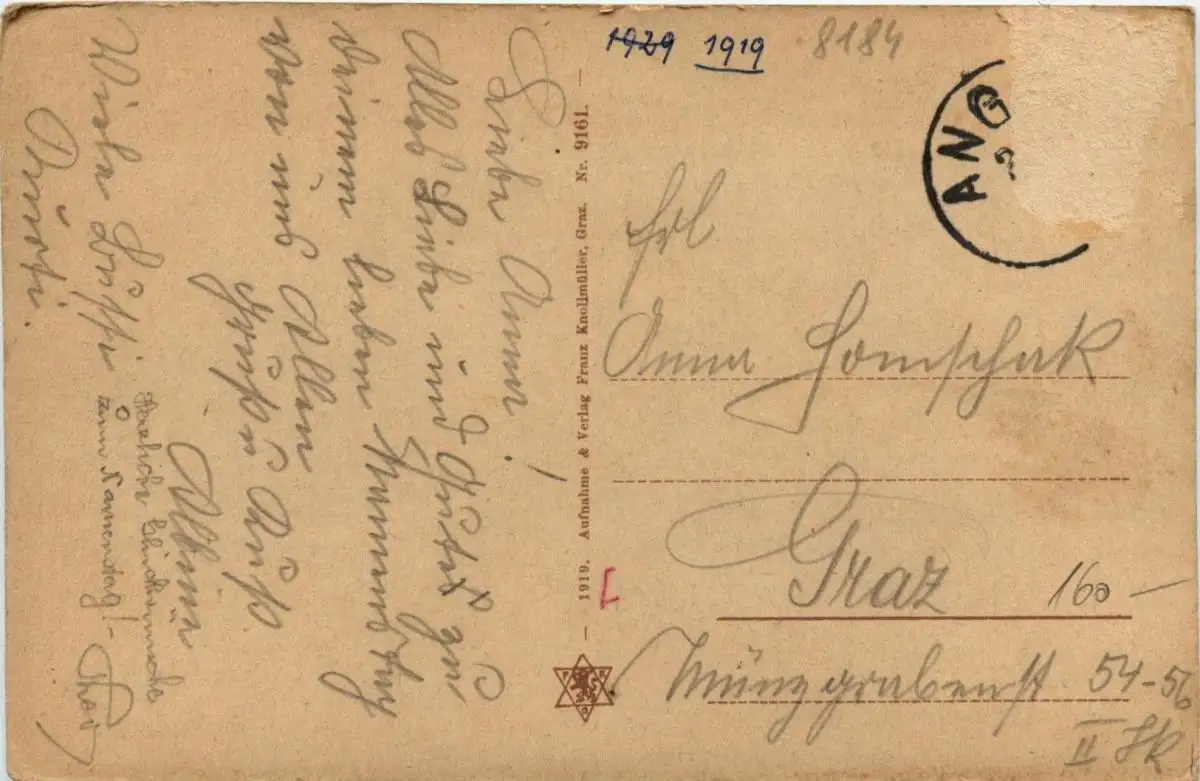 1929 1919 8184
ANG
Liebe Anna!
Alles Liebe und Gute zu
deinem lieben Namenstag
von uns Allen
Grüße Küße
Albin
Viele Bussi
Herzliche Glückwünsche
zum Namenstag!
1919. Aufnahme & Verlag Franz Knollmüller, Graz. Nr. 9161.
Frl
Anna Homschak
Graz
160
Münzgrabenst 54-56
II Stk